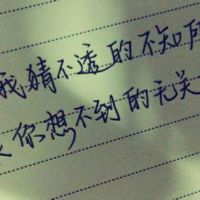 我猜不透的不知所
你想不到的无关